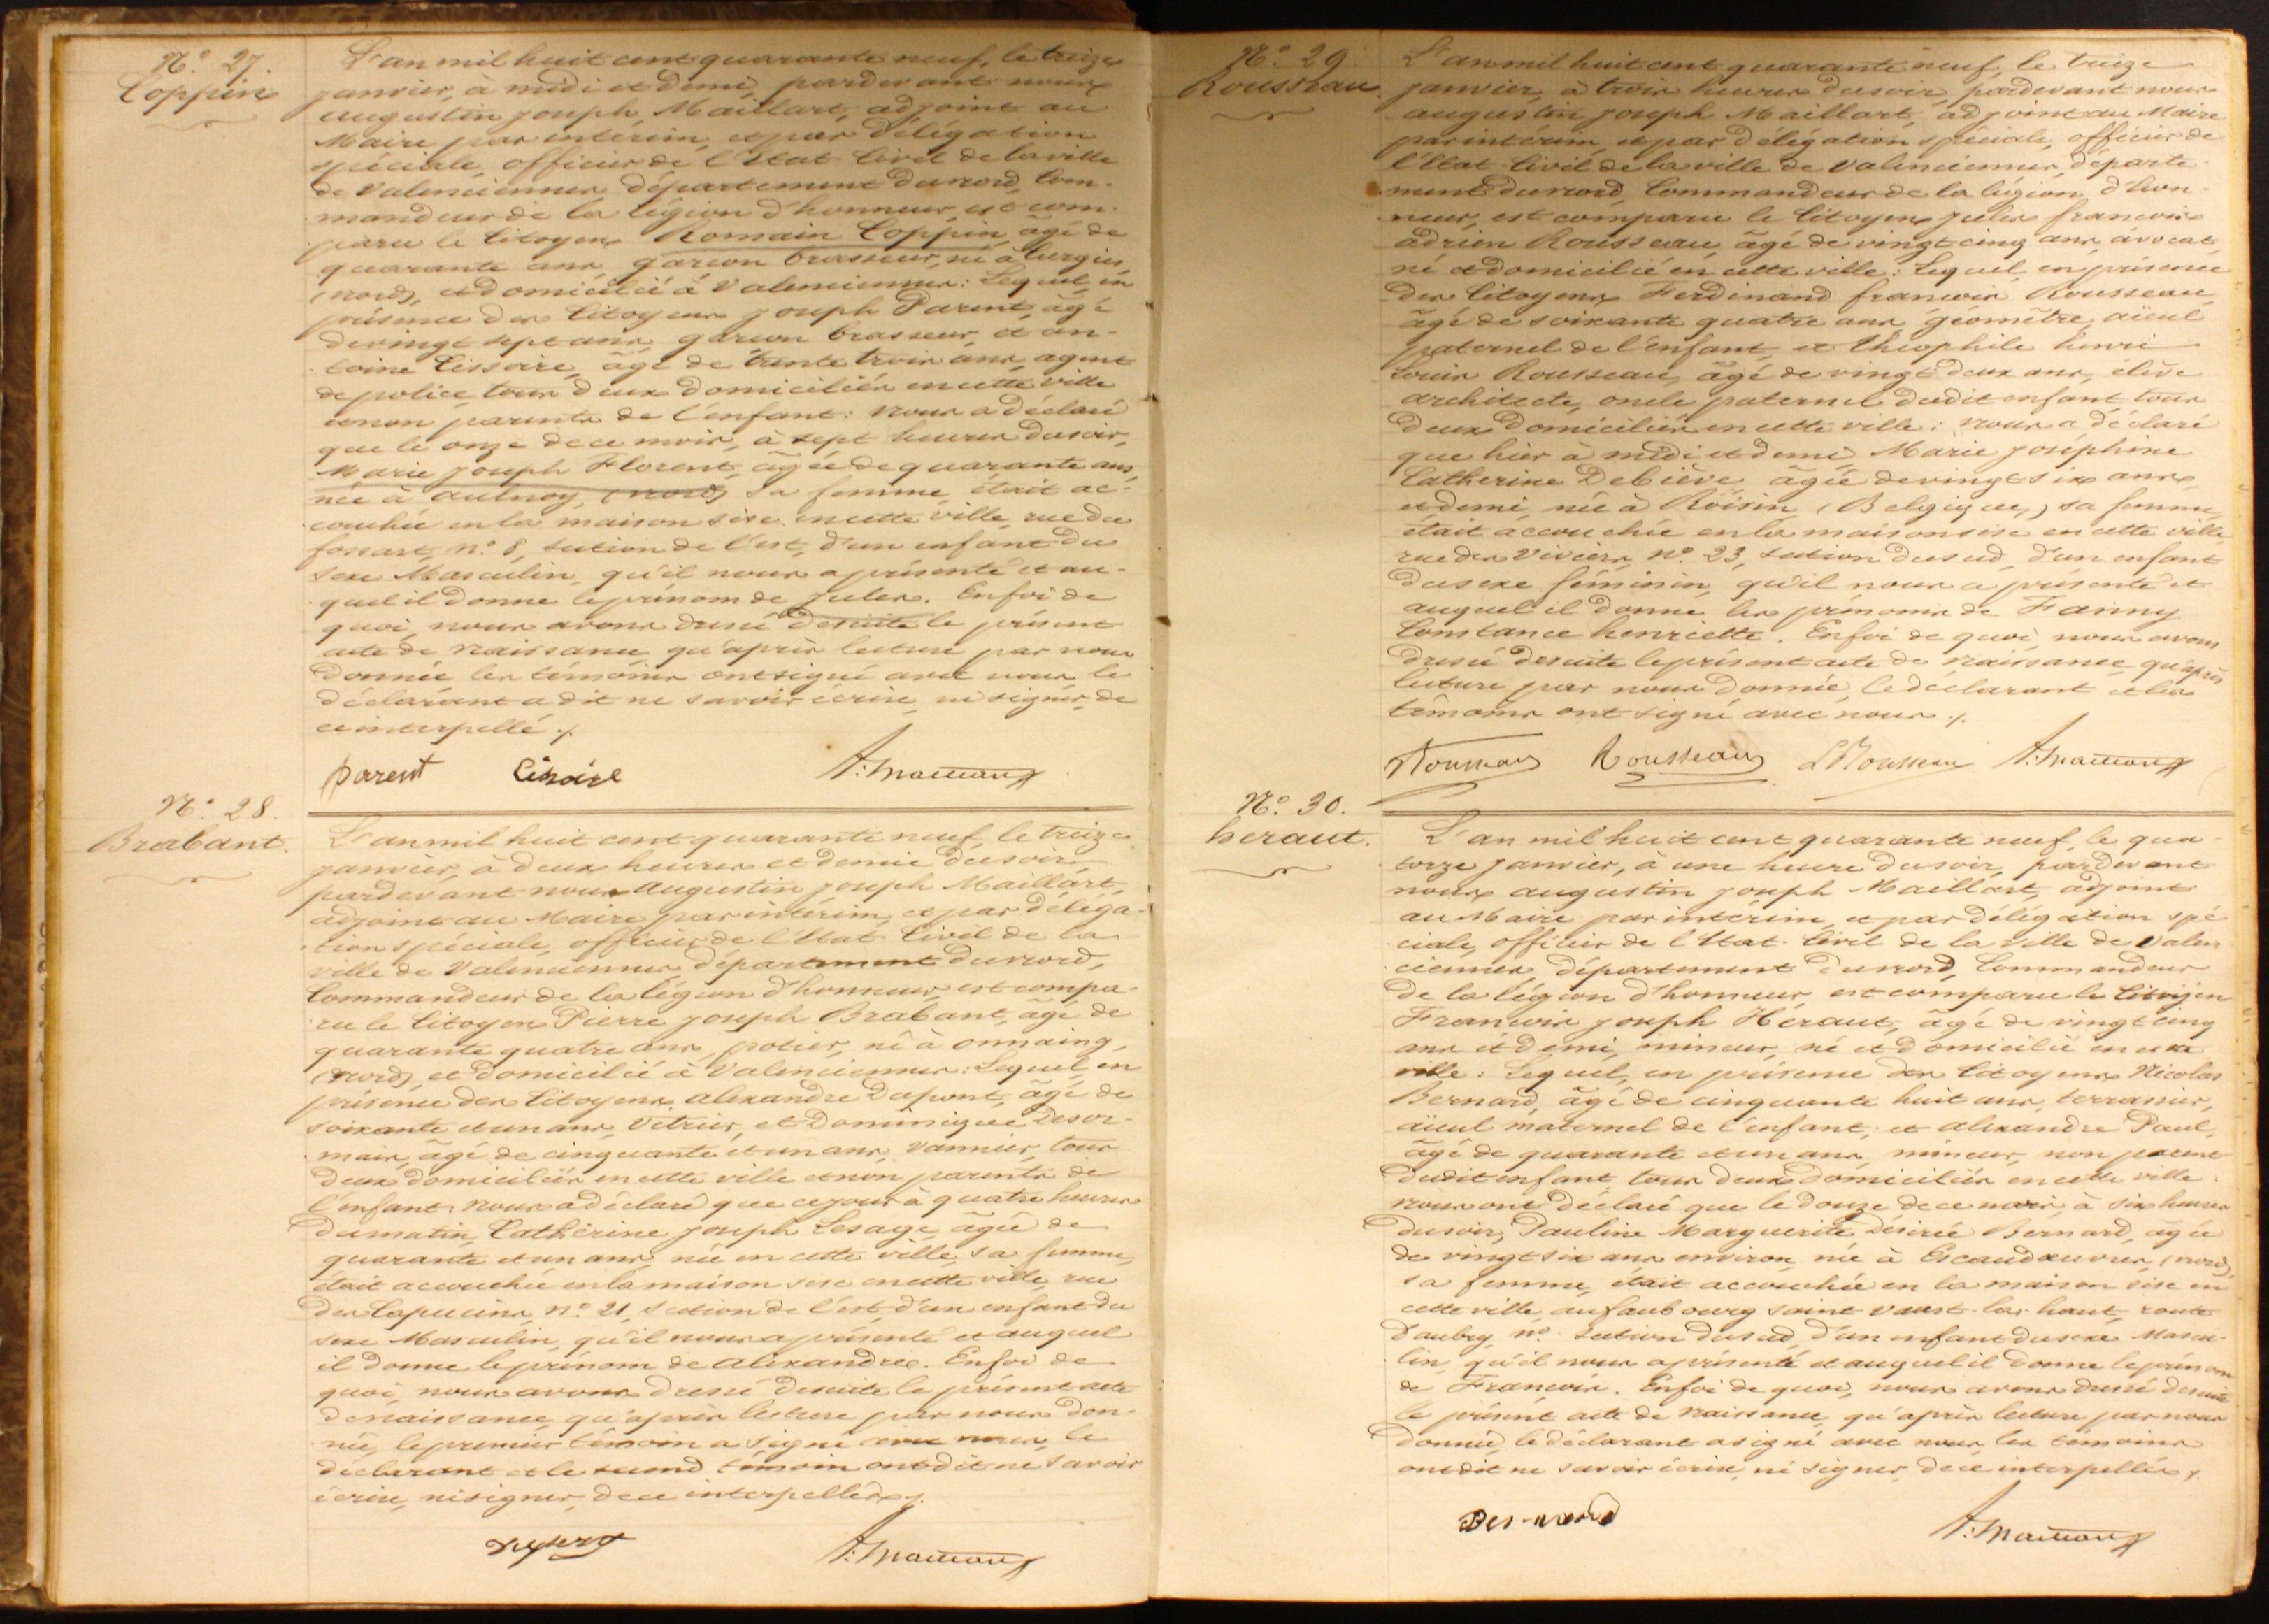 N.° 27.
Coppin
L'an mil huit cent quarante neuf, le treize
janvier, à midi et demi, pardevant nous
augustin joseph Maillart, adjoint au
Maire par intérim, et par délégation
spéciale, officier de l'Etat-Civil de la ville
de Valenciennes, département du nord, Com-
mandeur de la légion d'honneur, est com-
paru le Citoyen Romain Coppin, âgé de
quarante ans, garçon brasseur, né à Curgies,
(nord), et domicilié à Valenciennes: Lequel, en
présence des Citoyens joseph Parent, âgé
de vingt sept ans, garçon brasseur, et an-
toine Cissoire, âgé de trente trois ans, agent
de police, tous deux domiciliés en cette ville
et non parents de l'enfant: nous a déclaré
que le onze de ce mois, à sept heures du soir,
Marie joseph Florent, âgée de quarante ans,
née à aulnoy, (nord) sa femme, était ac-
couchée en la maison sise en cette ville, rue du
fossart, n.° 8, section de l'est, d'un enfant du
sexe Masculin, qu'il nous a présenté et au-
quel il donne le prénom de Jules. En foi de
quoi, nous avons dressé desuite le présent
acte de naissance, qu'après lecture par nous
donnée les témoins ont signé avec nous, le
déclarant a dit ne savoir écrire, ni signer, de
ce interpellé ./.
parent Cissoire A. Maillart
N.° 28.
Brabant.
L'an mil huit cent quarante neuf, le treize
janvier, à deux heures et demie du soir,
pardevant nous augustin joseph Maillart,
adjoint au Maire par intérim, et par déléga-
tion spéciale, officier de l'Etat-Civil de la
ville de Valenciennes, département du nord,
Commandeur de la légion d'honneur, est compa-
ru le Citoyen Pierre joseph Brabant, âgé de
quarante quatre ans, potier, né à onnaing,
(nord), et domicilié à Valenciennes: Lequel, en
présence des Citoyens alexandre Dupont, âgé de
soixante et un ans, Vitrier, et Dominique Desor-
mais, âgé de cinquante et un ans, vannier, tous
deux domiciliés en cette ville et non parents de
l'enfant: nous a déclaré que ce jour à quatre heures
du matin, Catherine joseph Lesage, âgée de
quarante et un ans, née en cette ville, sa femme,
était accouchée en la maison sise en cette ville, rue
des Capucins, n.° 21, section de l'est, d'un enfant du
sexe Masculin, qu'il nous a présenté et auquel
il donne le prénom de alexandre. En foi de
quoi, nous avons dressé desuite le présent acte
de naissance, qu'après lecture par nous don-
née, le premier témoin a signé avec nous, le
déclarant et le second témoin ont dit ne savoir
écrire, ni signer, de ce interpellés ./.
A. Maillart
N.° 29.
Rousseau
L'an mil huit cent quarante neuf, le treize
janvier, à trois heures du soir, pardevant nous
augustin joseph Maillart, adjoint au Maire
par intérim, et par délégation spéciale, officier de
l'Etat-Civil de la ville de Valenciennes, départe-
ment du nord, Commandeur de la légion d'hon-
neur, est comparu le Citoyen jules francois
adrien Rousseau, âgé de vingt cinq ans, avocat,
né et domicilié en cette ville: Lequel, en présence
des Citoyens Ferdinand francois Rousseau,
âgé de soixante quatre ans, géomètre, aieul
paternel de l'enfant, et théophile henri
Louis Rousseau, âgé de vingt deux ans, élève
architecte, oncle paternel dudit enfant, tous
deux domiciliés en cette ville: nous a déclaré
que hier à midi et demi, Marie joséphine
Catherine Debiève, âgée de vingt six ans
et demi, née à Roisin (Belgique,) sa femme,
était accouchée en la maison sise en cette ville,
rue des Viviers, n.° 23, section du sud, d'un enfant
du sexe féminin, qu'il nous a présenté et
auquel il donne les prénoms de Fanny
Constance henriette. En foi de quoi, nous avons
dressé desuite le présent acte de naissance, qu'après
lecture par nous donnée, le déclarant et les
témoins ont signé avec nous ./.
Rousseau Rousseau L Rousseau A. Maillart
N.° 30.
heraut.
L'an mil huit cent quarante neuf, le qua-
torze janvier, à une heure du soir, pardevant
nous augustin joseph Maillart, adjoint
au Maire par intérim, et par délégation spé-
ciale, officier de l'Etat-Civil de la ville de Valen-
ciennes, département du nord, Commandeur
de la légion d'honneur, est comparu le Citoyen
Francois joseph Héraut, âgé de vingt cinq
ans et demi, mineur, né et domicilié en cette
ville: Lequel, en présence des Citoyens Nicolas
Bernard, âgé de cinquante huit ans, terrassier,
aïeul maternel de l'enfant, et alexandre Paul,
âgé de quarante et un ans, mineur, non parent
dudit enfant, tous deux domiciliés en cette ville:
nous ont déclaré que le douze de ce mois, à six heures
du soir, Pauline Marguerite Désirée Bernard, âgée
de vingt six ans environ, née à Escaudoeuvres, (nord),
sa femme, était accouchée en la maison sise en
cette ville, au faubourg saint Vaast-là-haut, route
d'aubry, n.° section du sud, d'un enfant du sexe Mascu-
lin, qu'il nous a présenté et auquel il donne le prénom
de Francois. En foi de quoi, nous avons dressé desuite
le présent acte de naissance, qu'après lecture par nous
donnée, le déclarant a signé avec nous, les témoins
ont dit ne savoir écrire, ni signer, de ce interpellés ./.
Bernard A. Maillart